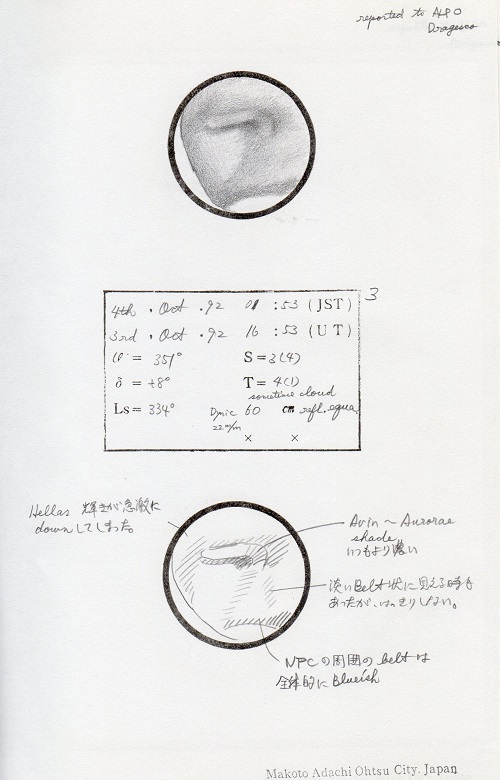 reported to ALPO
Dragesco
3
4th . Oct . 92 01 : 53 (JST)
3rd . Oct . 92 16 : 53 (UT)
ω = 351° S = 3(4)
δ = +8° T = 4(1)
sometime cloud
Ls = 334° 60 cm refl. equa.
× ×
Hellas 輝きが急激に
downしてしまった
Aurorae
shade
いつもより濃い
淡いBelt状に見える時も
あったが、はっきりしない。
NPCの周囲のbeltは
全体的にBlueish
Makoto Adachi Ohtsu City. Japan